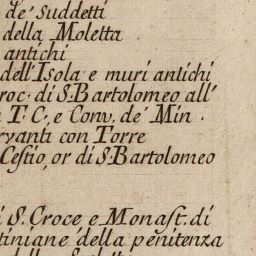 de' Suddetti
della Moletta
antichi
dell'Isola e muri antichi
roc. di S. Bartolomeo all'
T. C. e Conv. de' Min
rvanti con Torre
Cestio, or di S. Bartolomeo
i S. Croce e Monast. di
tiniane della penitenza